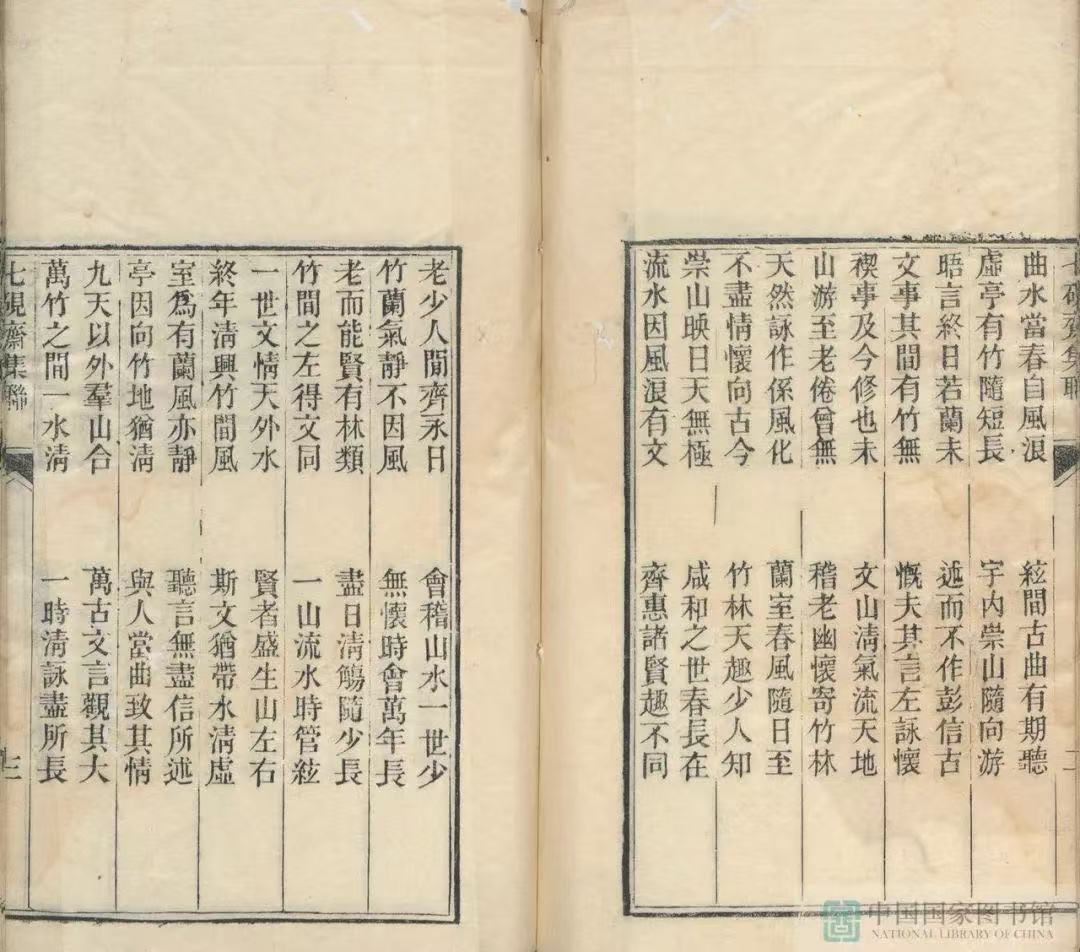 七硯齋集聯
二
曲水當春自風浪
虛亭有竹隨短長
晤言終日若蘭未
文事其間有竹無
禊事及今修也未
山游至老倦曾無
天然詠作係風化
不盡情懷向古今
崇山映日天無極
流水因風浪有文
絃間古曲有期聽
宇内崇山隨向游
述而不作彭信古
慨夫其言左詠懷
文山淸氣流天地
稽老幽懷寄竹林
蘭室春風隨日至
竹林天趣少人知
咸和之世春長在
齊惠諸賢趣不同
老少人間齊永日
竹蘭氣靜不因風
老而能賢有林類
竹間之左得文同
一世文情天外水
終年淸興竹間風
室爲有蘭風亦靜
亭因向竹地猶淸
九天以外羣山合
萬竹之間一水淸
會稽山水一世少
無懷時會萬年長
盡日淸觴隨少長
一山流水時管絃
賢者盛生山左右
斯文猶帶水淸虛
聽言無盡信所述
與人堂曲致其情
萬古文言觀其大
一時淸詠盡所長
七硯齋集聯
三
中国国家图书馆
NATIONAL LIBRARY OF CHINA